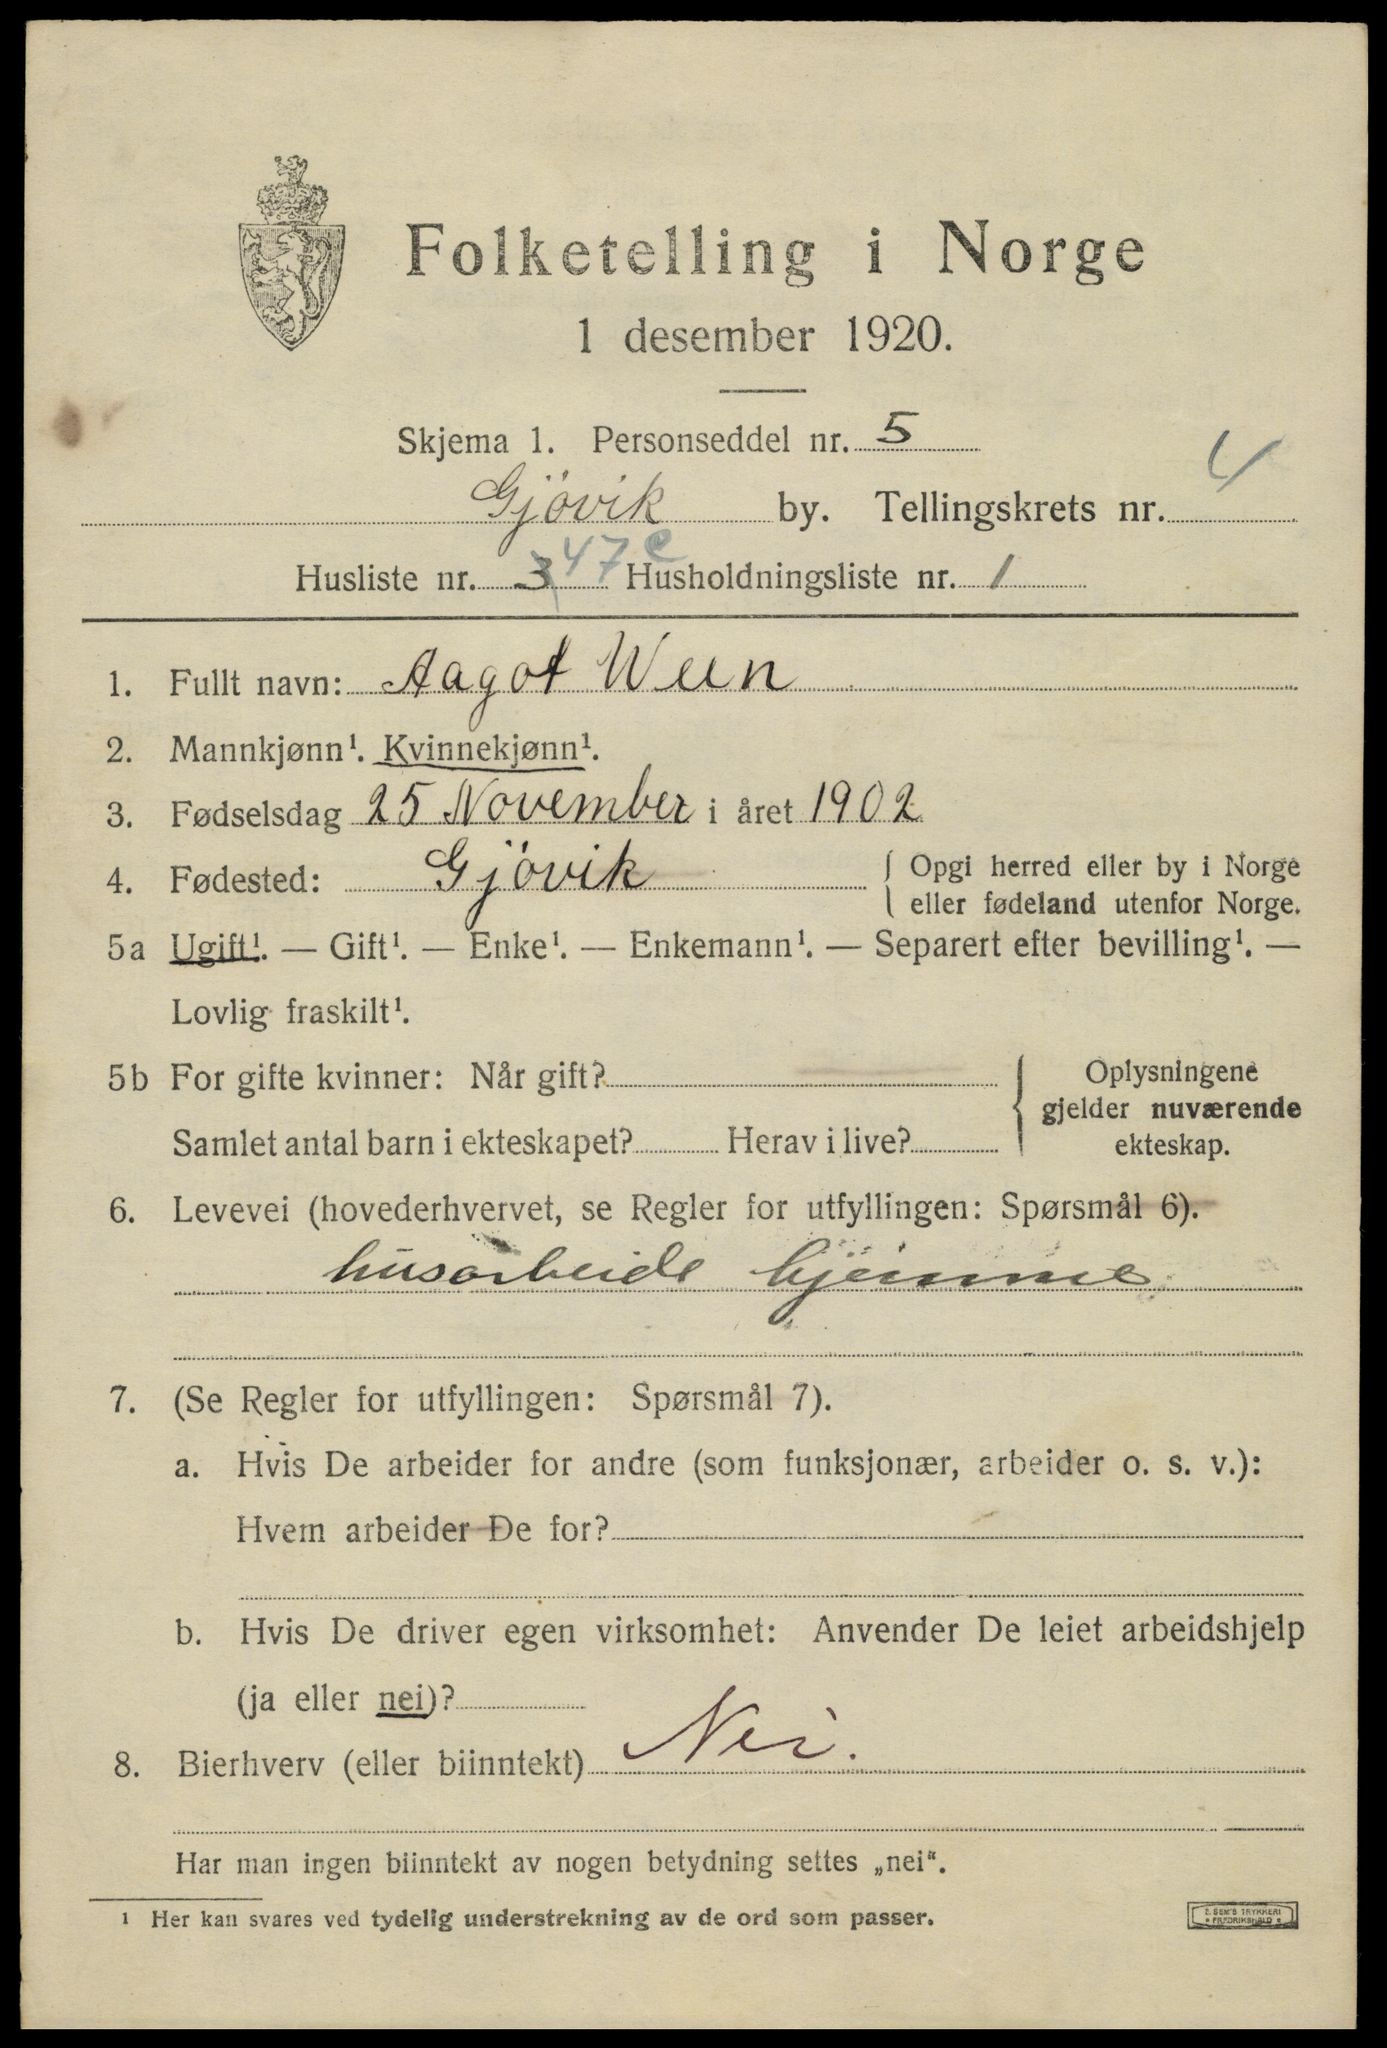 Folketelling i Norge
1 desember 1920.
Skjema 1. Personseddel nr. 5
Gjövik by. Tellingskrets nr. 4
Husliste nr. 3 47 c Husholdningsliste nr. 1
1. Fullt navn: Aagot Ween
2. Mannkjønn¹. Kvinnekjønn¹.
3. Fødselsdag 25 November i året 1902
4. Fødested: Gjövik { Opgi herred eller by i Norge
eller fødeland utenfor Norge.
5a Ugift¹. — Gift¹. — Enke¹. — Enkemann¹. — Separert efter bevilling¹. —
Lovlig fraskilt¹.
5b For gifte kvinner: Når gift? { Oplysningene
gjelder nuværende
Samlet antal barn i ekteskapet? Herav i live? ekteskap.
6. Levevei (hovederhvervet, se Regler for utfyllingen: Spørsmål 6).
husarbeide hjemme
7. (Se Regler for utfyllingen: Spørsmål 7).
a. Hvis De arbeider for andre (som funksjonær, arbeider o. s. v.):
Hvem arbeider De for?
b. Hvis De driver egen virksomhet: Anvender De leiet arbeidshjelp
(ja eller nei)?
8. Bierhverv (eller biinntekt) Nei.
Har man ingen biinntekt av nogen betydning settes „nei“.
¹ Her kan svares ved tydelig understrekning av de ord som passer.
E. SEM'S TRYKKERI
FREDRIKSHALD